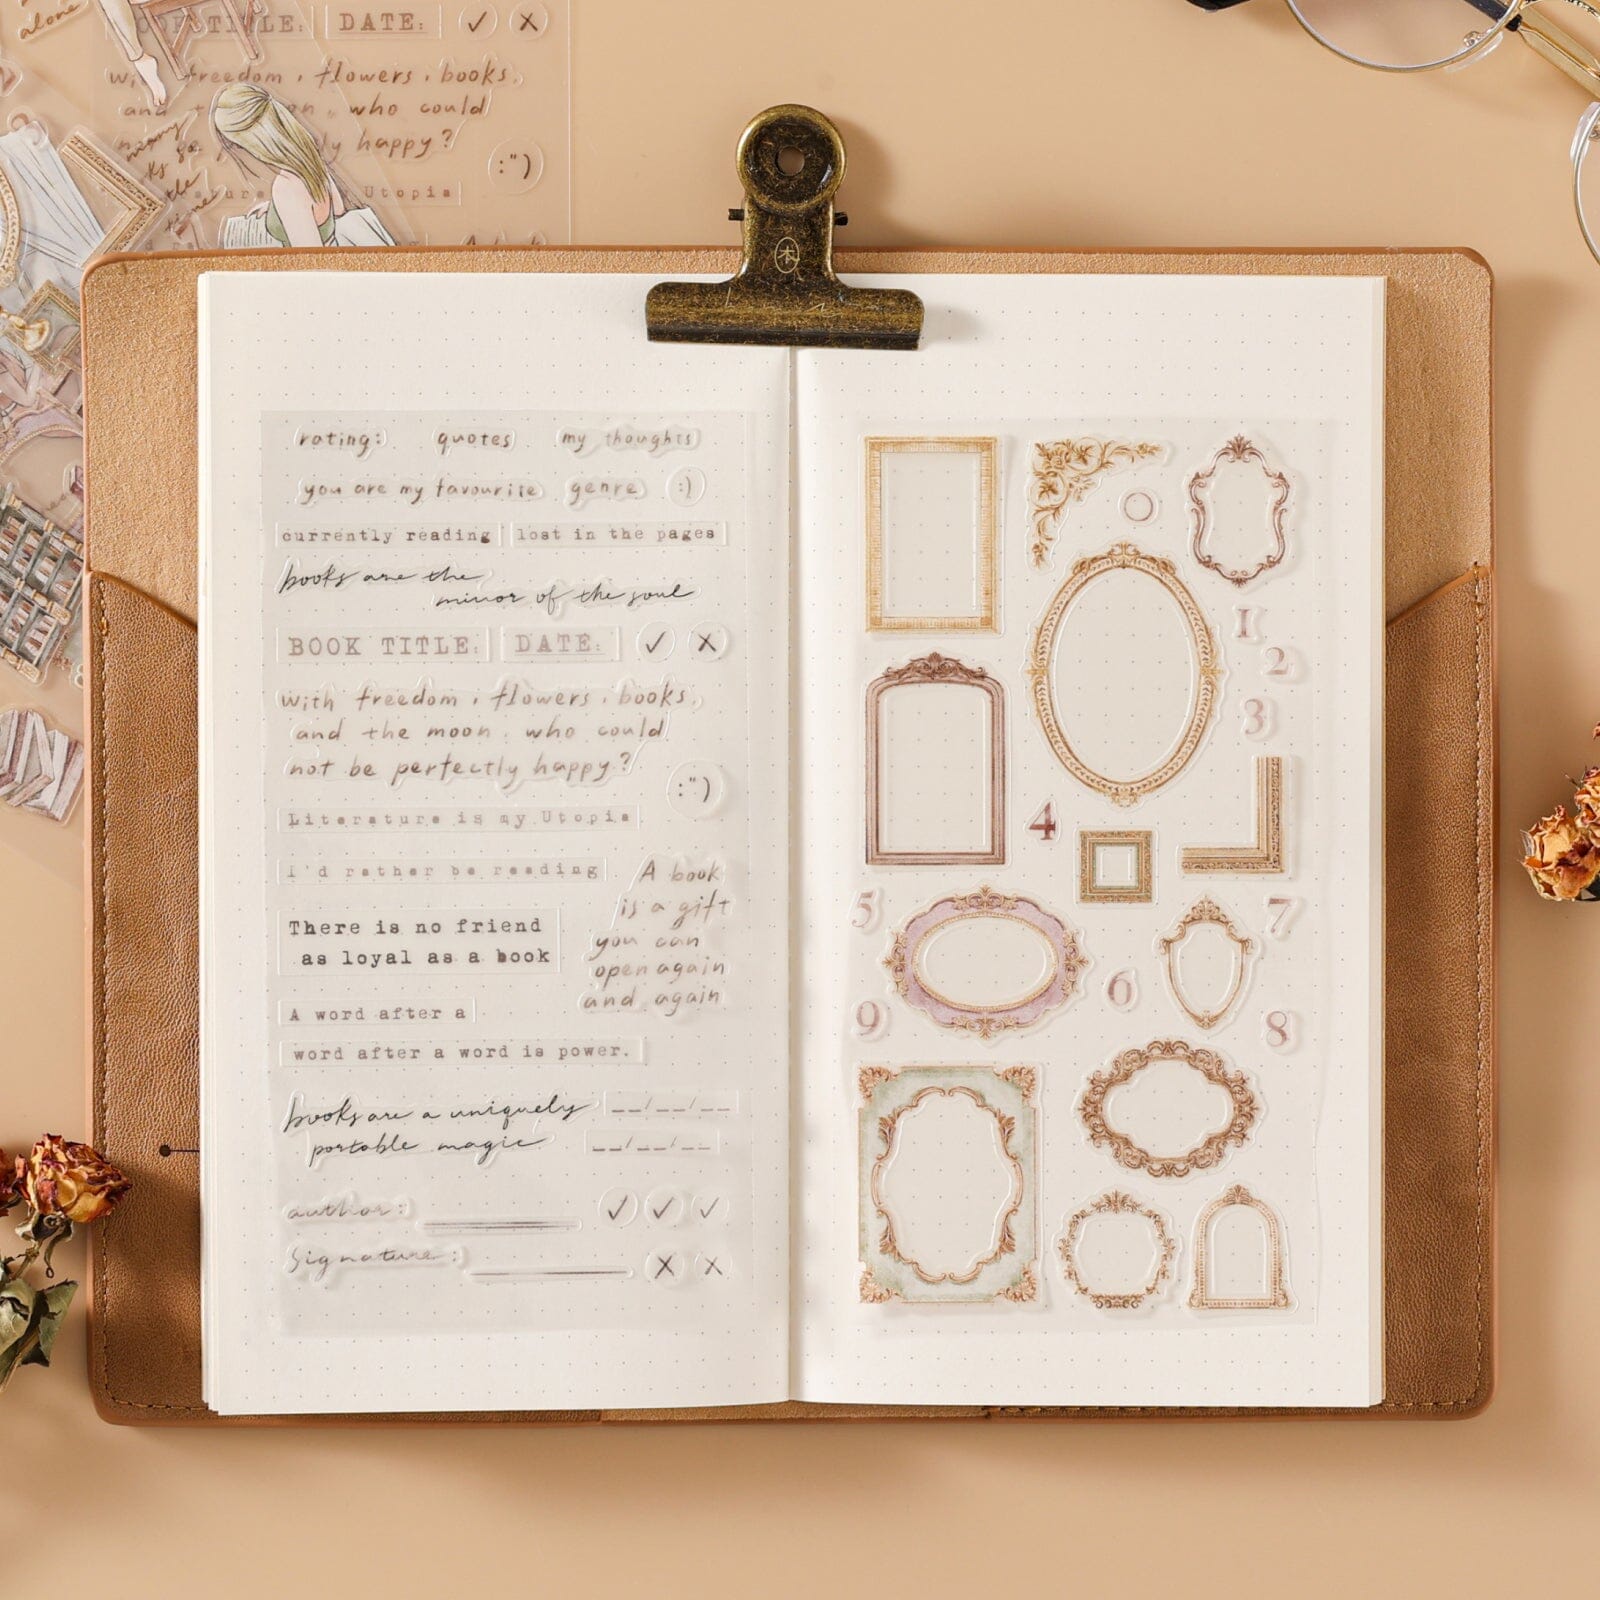 alone
TITLE: DATE: ✓ ✕
freedom, flowers, books,
and who could
happy?
:")
Utopia
本
rating: quotes my thoughts
you are my favourite genre :)
currently reading lost in the pages
books are the
mirror of the soul
BOOK TITLE: DATE: ✓ ✕
with freedom, flowers, books,
and the moon, who could
not be perfectly happy?
:")
Literature is my Utopia
I'd rather be reading
A book
is a gift
you can
open again
and again
There is no friend
as loyal as a book
A word after a
word after a word is power.
books are a uniquely
portable magic
__/__/__
__/__/__
author: ✓ ✓ ✓
Signature: ✕ ✕
1
2
3
4
5
7
6
9
8